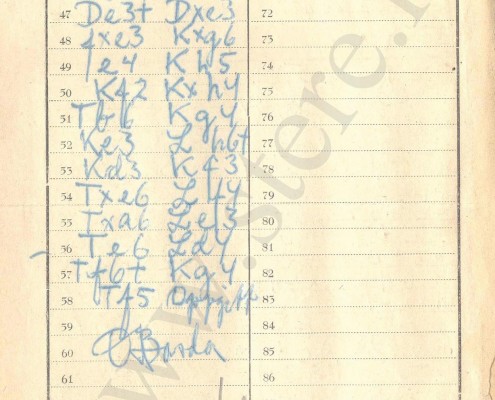 47 De3+ Dxe3 72
48 fxe3 Kxg6 73
49 e4 Kh5 74
50 Kf2 Kxh4 75
51 Tb6 Kg4 76
52 Ke3 Lh6+ 77
53 Kd3 Kf3 78
54 Txe6 Lf4 79
55 Txa6 80
56 Te6 Ld4 81
57 Tf6+ Kg4 82
58 Tf5 Oppgitt 83
59 84
60 O Barda 85
61 86
www.stere